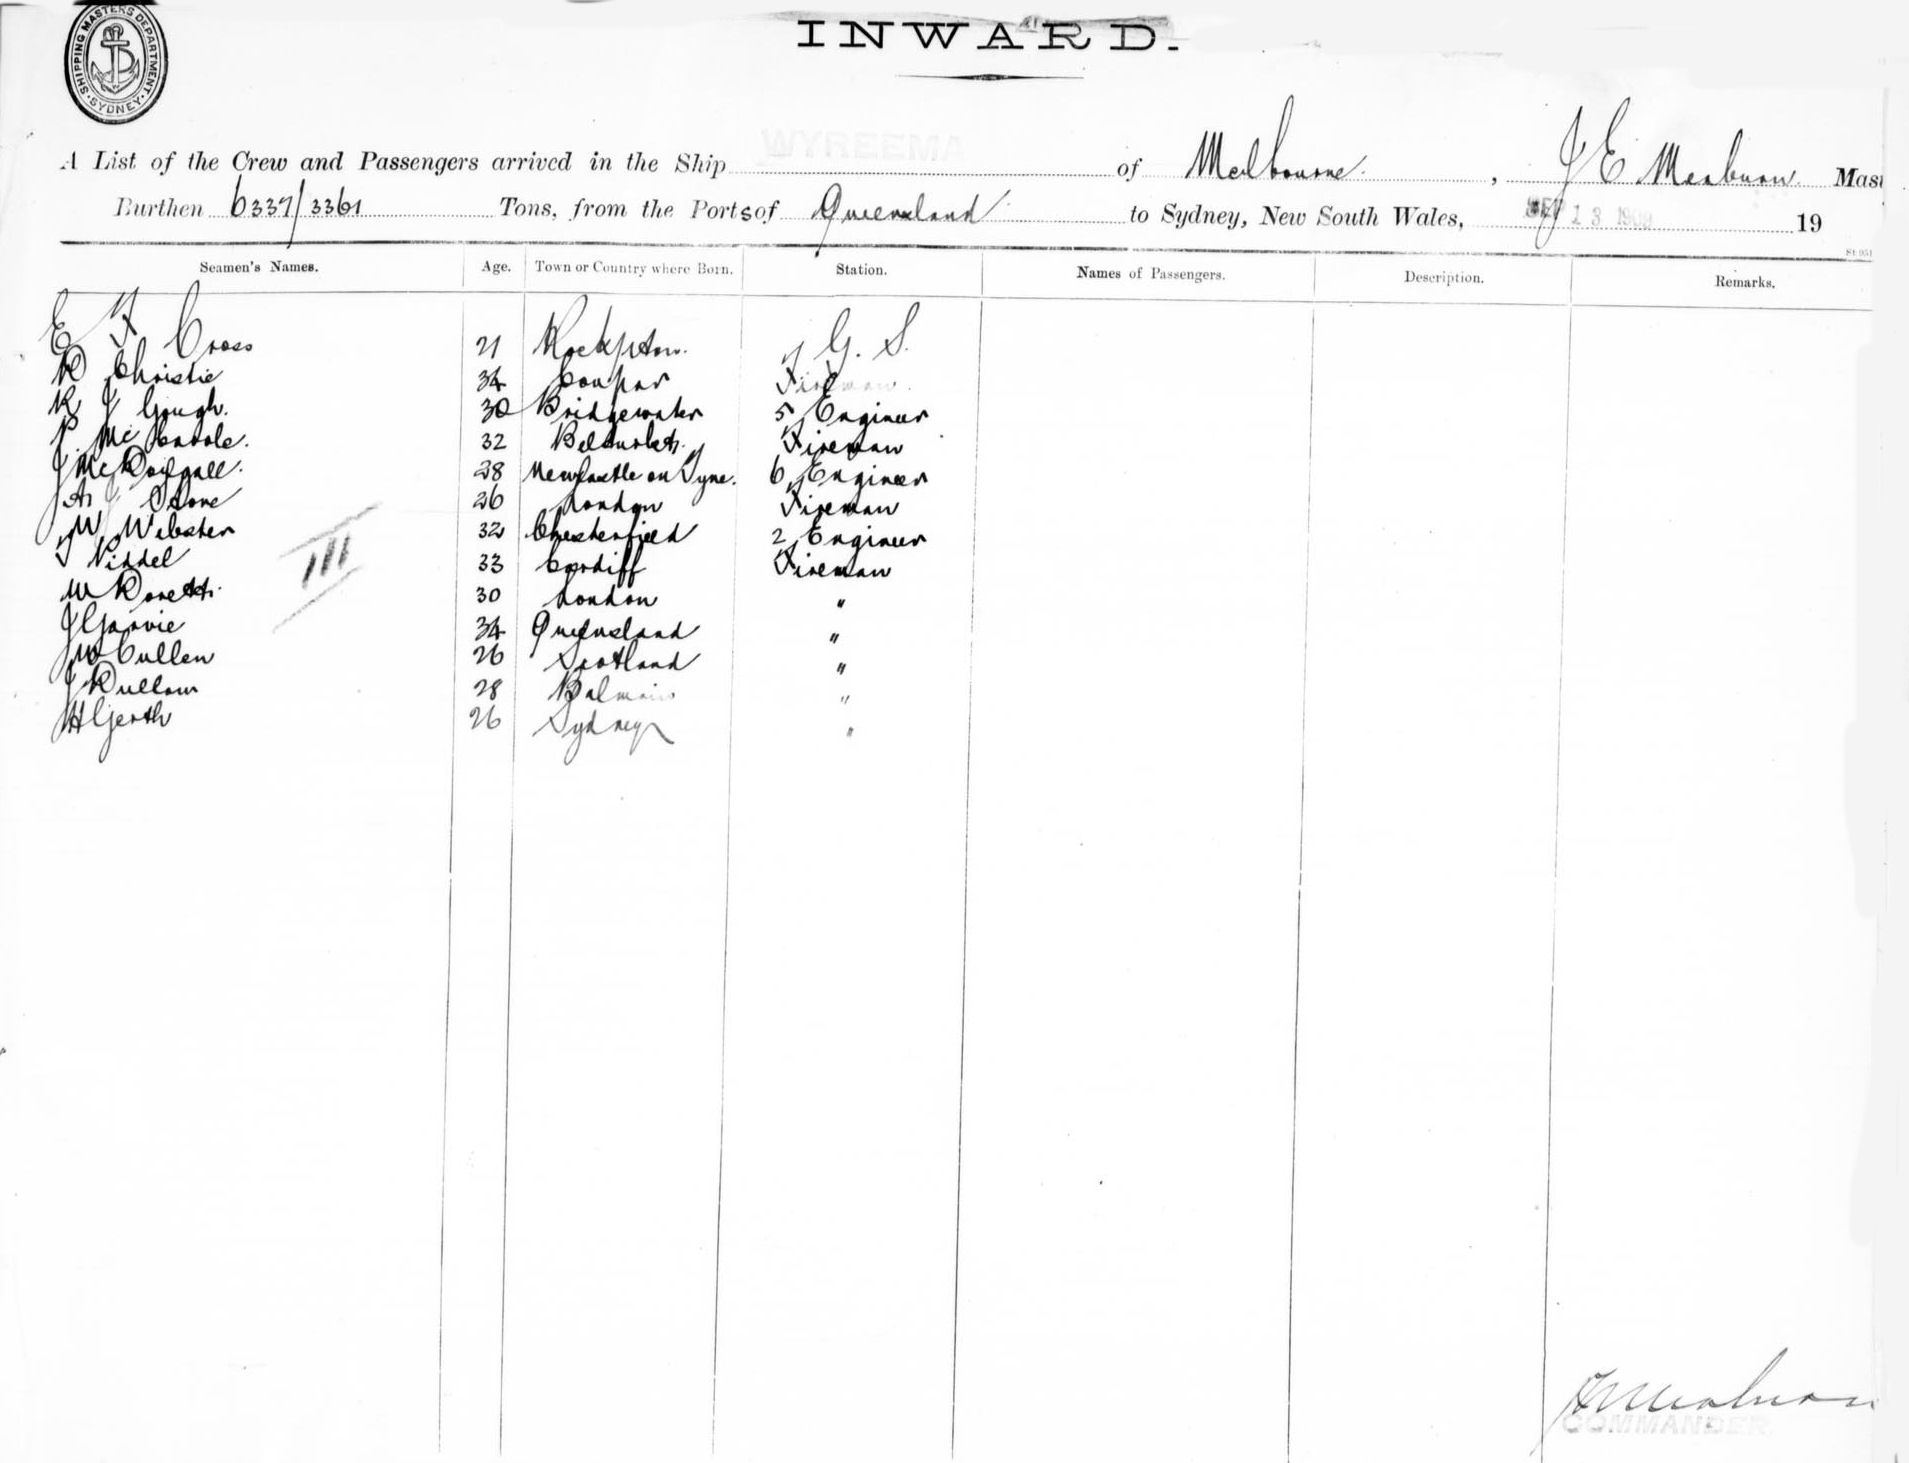 SHIPPING MASTERS DEPARTMENT. SYDNEY.
INWARD.
A List of the Crew and Passengers arrived in the Ship WYREEMA of Melbourne, J E Meaburn Mast
Burthen 6337/3361 Tons, from the Ports of Queensland to Sydney, New South Wales, SEP 13 1909 19
Seamen's Names. Age. Town or Country where Born. Station. Names of Passengers. Description. Remarks.
E F Cross 21 Rockpton. G. S.
D Christie 34 Coupar Fireman.
R J Gough. 30 Bridgewater 5 Engineer
P. Mc 32 Fireman
J McDougall. 28 Newcastle on Tyne. 6 Engineer
A J Stone 26 London Fireman
W Webster 32 Chesterfield 2 Engineer
33 Cardiff Fireman
W 30 London "
J Garvie 34 Queensland "
W Cullen 26 Scotland "
J 28 Balmain "
H Gerth 26 Sydney "
III
COMMANDER.